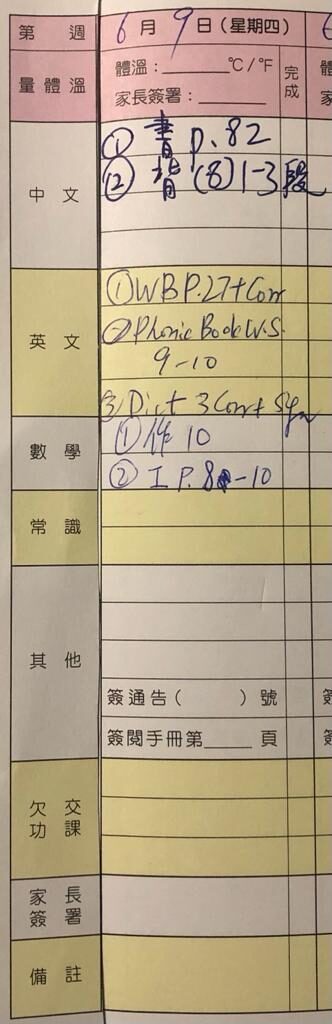 第 週 6 月 9 日(星期四)
量體溫 體溫:______℃/℉ 完成
家長簽署:______
中文 ① 書 p.82
② 背 (8) 1-3 段
英文 ① WB P.27+Corr
② Phonic Book W.S.
9-10
③ Dict 3 Corr + Sign
數學 ① 作 10
② I P.8-10
常識
其他
簽通告( )號
簽閱手冊第____頁
欠交功課
家長簽署
備註